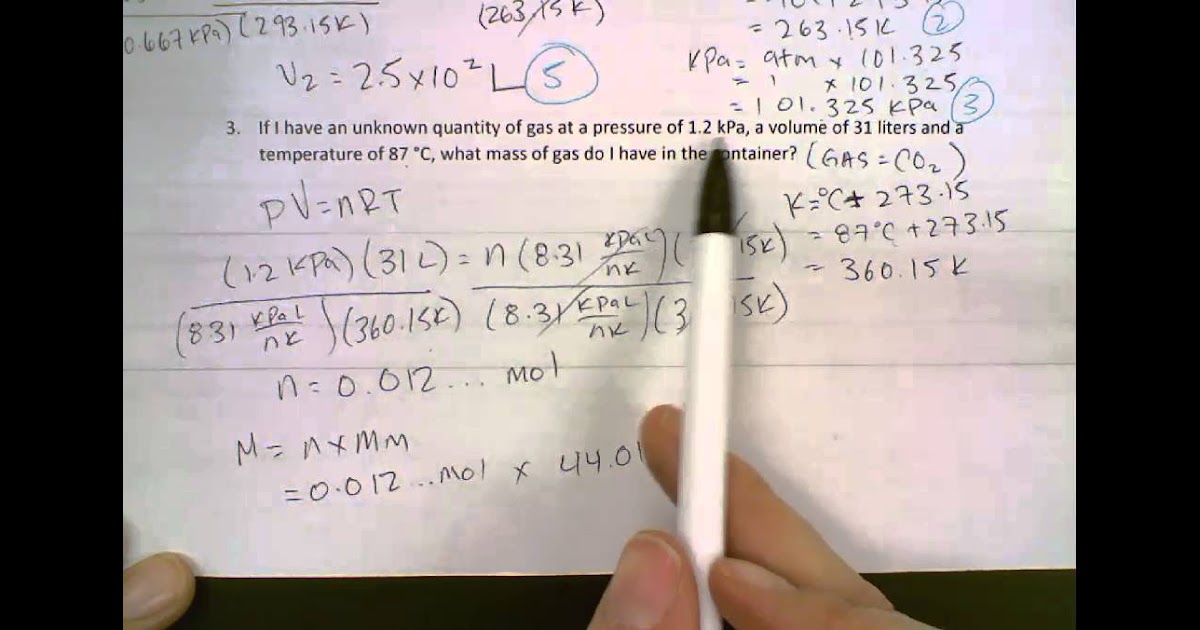 0.667 kPa) (293.15K)
(263.15K)
= 263.15K 2
V2 = 2.5x10² L 5
kPa = atm x 101.325
= 1 x 101.325
= 101.325 kPa 3
3. If I have an unknown quantity of gas at a pressure of 1.2 kPa, a volume of 31 liters and a
temperature of 87 °C, what mass of gas do I have in the container? (GAS = CO2)
PV = nRT
K = °C + 273.15
= 87°C + 273.15
= 360.15 K
(1.2 kPa) (31 L) = n (8.31 kPaL/nK) ( 15K)
(8.31 kPaL/nK) (360.15K) (8.31 kPaL/nK) (3 15K)
n = 0.012... mol
M = n x MM
= 0.012...mol x 44.01